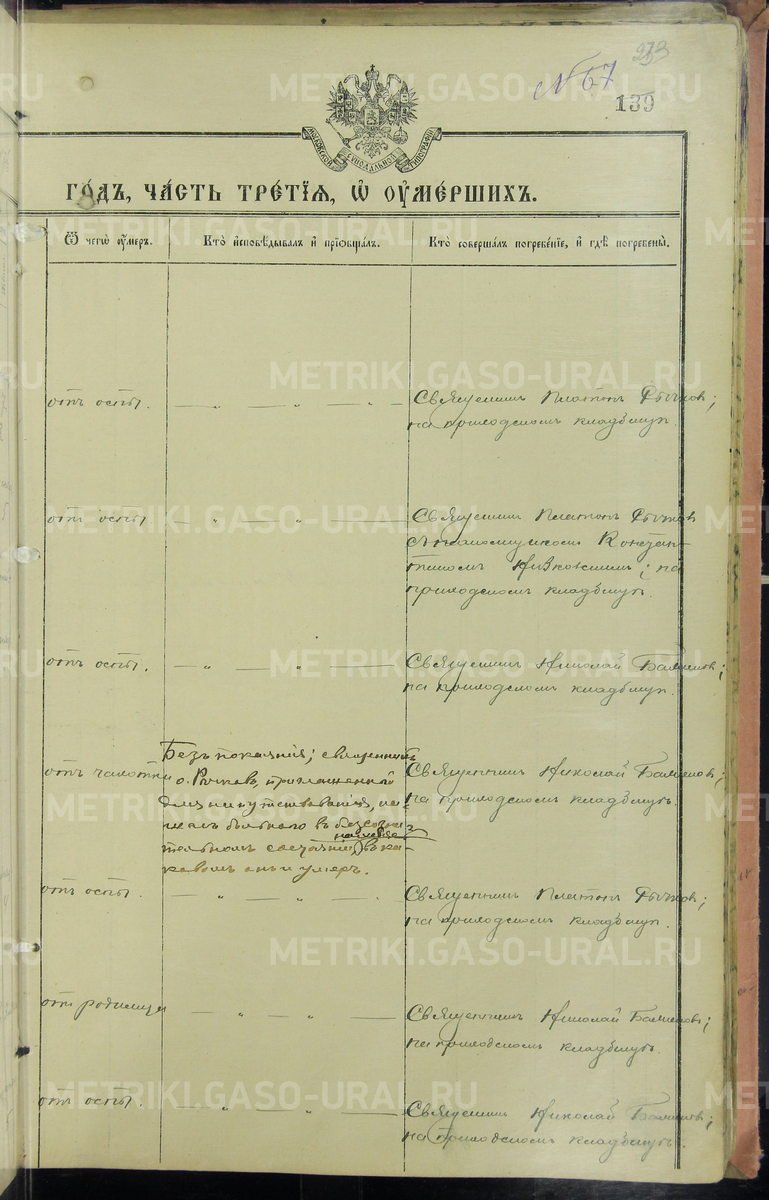 № 67
139
МОСКОВСКОЙ СѴНОДАЛЬНОЙ ТИПОГРАФІИ
ГО́ДЪ, ЧА́СТЬ ТРЕ́ТЇѦ, Ѡ ОУ҆МЕ́РШИХЪ.
Ѿ чегѡ̀ оу҆́меръ.
Кто̀ и҆сповѣ́дывалъ и҆ прїѡбща́лъ.
Кто̀ соверша́лъ погребе́нїе, и҆ гдѣ̀ погребены̀.
отъ оспы. — „ — „ —
Священникъ Платонъ Рычковъ;
на приходскомъ кладбищѣ.
отъ оспы — „ — „ —
Священникъ Платонъ Рычковъ
съ псаломщикомъ Констан-
тиномъ на
приходскомъ кладбищѣ.
отъ оспы. — „ — „ —
Священникъ Николай
на приходскомъ кладбищѣ.
отъ чахотки
Безъ покаянія; священникъ
о. Рычковъ, приглашенный
для напутствованія, за-
сталъ больного въ безсозна-
тельномъ состояніи, въ ка-
ковомъ онъ и умеръ.
Священникъ Николай
на приходскомъ кладбищѣ.
отъ оспы. — „ — „ —
Священникъ Платонъ Рычковъ;
на приходскомъ кладбищѣ.
отъ родимца — „ — „ —
Священникъ Николай
на приходскомъ кладбищѣ.
отъ оспы. — „ — „ —
Священникъ Николай
на приходскомъ кладбищѣ.
METRIKI.GASO-URAL.RU